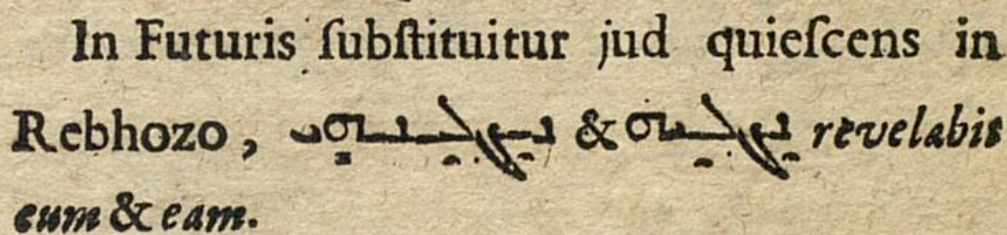 In Futuris ſubſtituitur jud quieſcens in
Rebhozo, ܢܸܓܠܸܝܘܗܝ & ܢܸܓܠܸܝܗ revelabit
eum & eam.